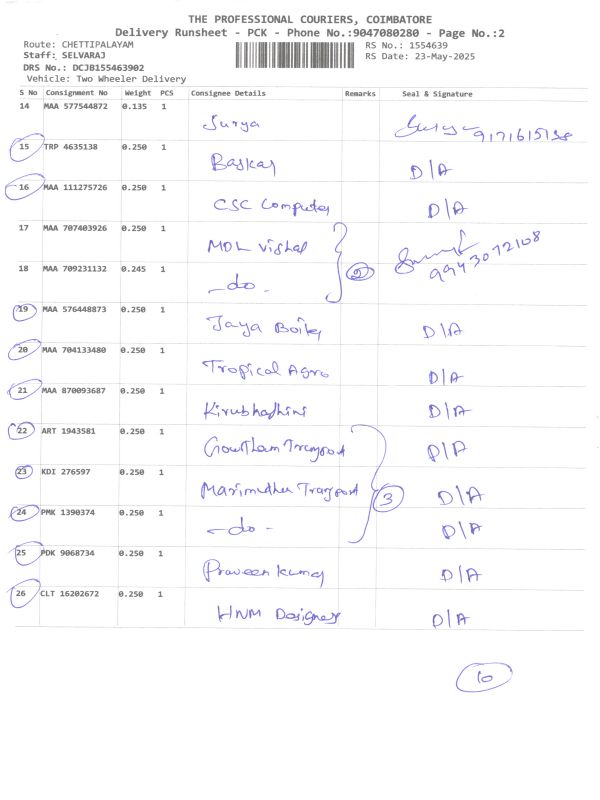 THE PROFESSIONAL COURIERS, COIMBATORE
Delivery Runsheet - PCK - Phone No.:9047080280 - Page No.:2
Route: CHETTIPALAYAM RS No.: 1554639
Staff: SELVARAJ RS Date: 23-May-2025
DRS No.: DCJB155463902
Vehicle: Two Wheeler Delivery
S No Consignment No Weight PCS Consignee Details Remarks Seal & Signature
14 MAA 577544872 0.135 1
Surya 9171615138
15 TRP 4635138 0.250 1
Baskar D/A
16 MAA 111275726 0.250 1
CSC Computer D/A
17 MAA 707403926 0.250 1
MDL Vishal
18 MAA 709231132 0.245 1
-do- 2 9943072108
19 MAA 576448873 0.250 1
Jaya D/A
20 MAA 704133480 0.250 1
Tropical Agro D/A
21 MAA 870093687 0.250 1
Kirubhashini D/A
22 ART 1943581 0.250 1
Goutham Transport D/A
23 KDI 276597 0.250 1
Marimuthu Transport 3 D/A
24 PMK 1390374 0.250 1
-do- D/A
25 PDK 9068734 0.250 1
Praveen kumar D/A
26 CLT 16202672 0.250 1
HNM Designer D/A
10